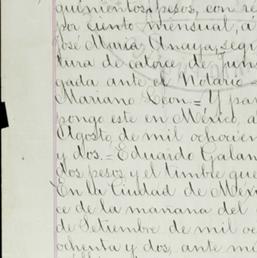 quinientos pesos, con ré
por ciento mensual, á
José María Anaya, segú
tura de catorce de Jun
gada ante el Notario
Mariano Leon.= Y par
pongo este en México, a
Agosto de mil ochocien
y dos.= Eduardo Galan
dos pesos y el timbre que
En la Ciudad de Méxi
ce de la mañana del
de Setiembre de mil oc
ochenta y dos, ante mi